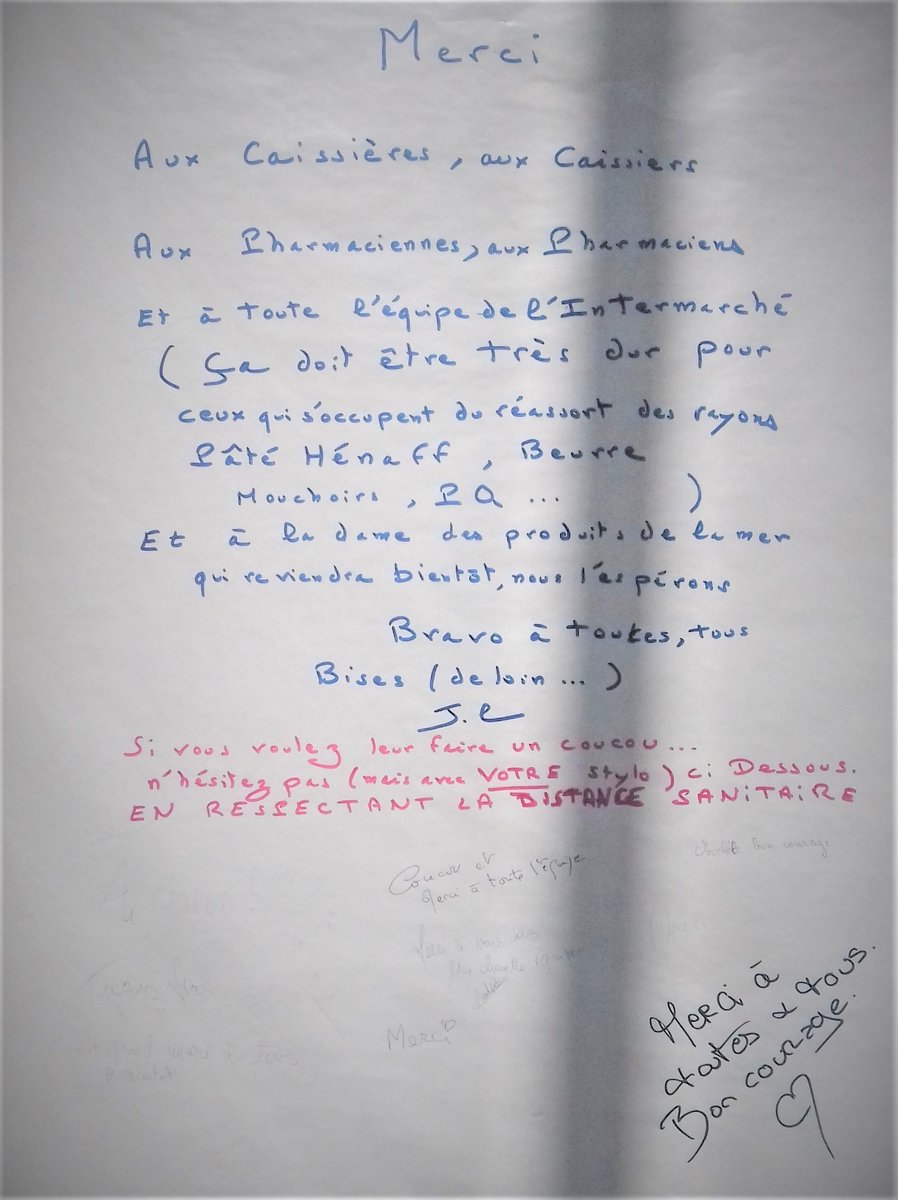 Merci
Aux Caissières, aux Caissiers
Aux Pharmaciennes, aux Pharmaciens
Et à toute l'équipe de l'Intermarché
(Ça doit être très dur pour
ceux qui s'occupent du réassort des rayons
Pâté Hénaff, Beurre
Mouchoirs, PQ ... )
Et à la dame des produits de la mer
qui reviendra bientôt, nous l'espérons
Bravo à toutes, tous
Bises (de loin ... )
J.C
Si vous voulez leur faire un coucou...
n'hésitez pas (mais avec VOTRE stylo) ci Dessous.
EN RESPECTANT LA DISTANCE SANITAIRE
Bon courage
Coucou et
Merci à toute l'équipe
Merci à
Merci
merci à tous
A bientôt
Merci à
toutes & tous.
Bon courage.